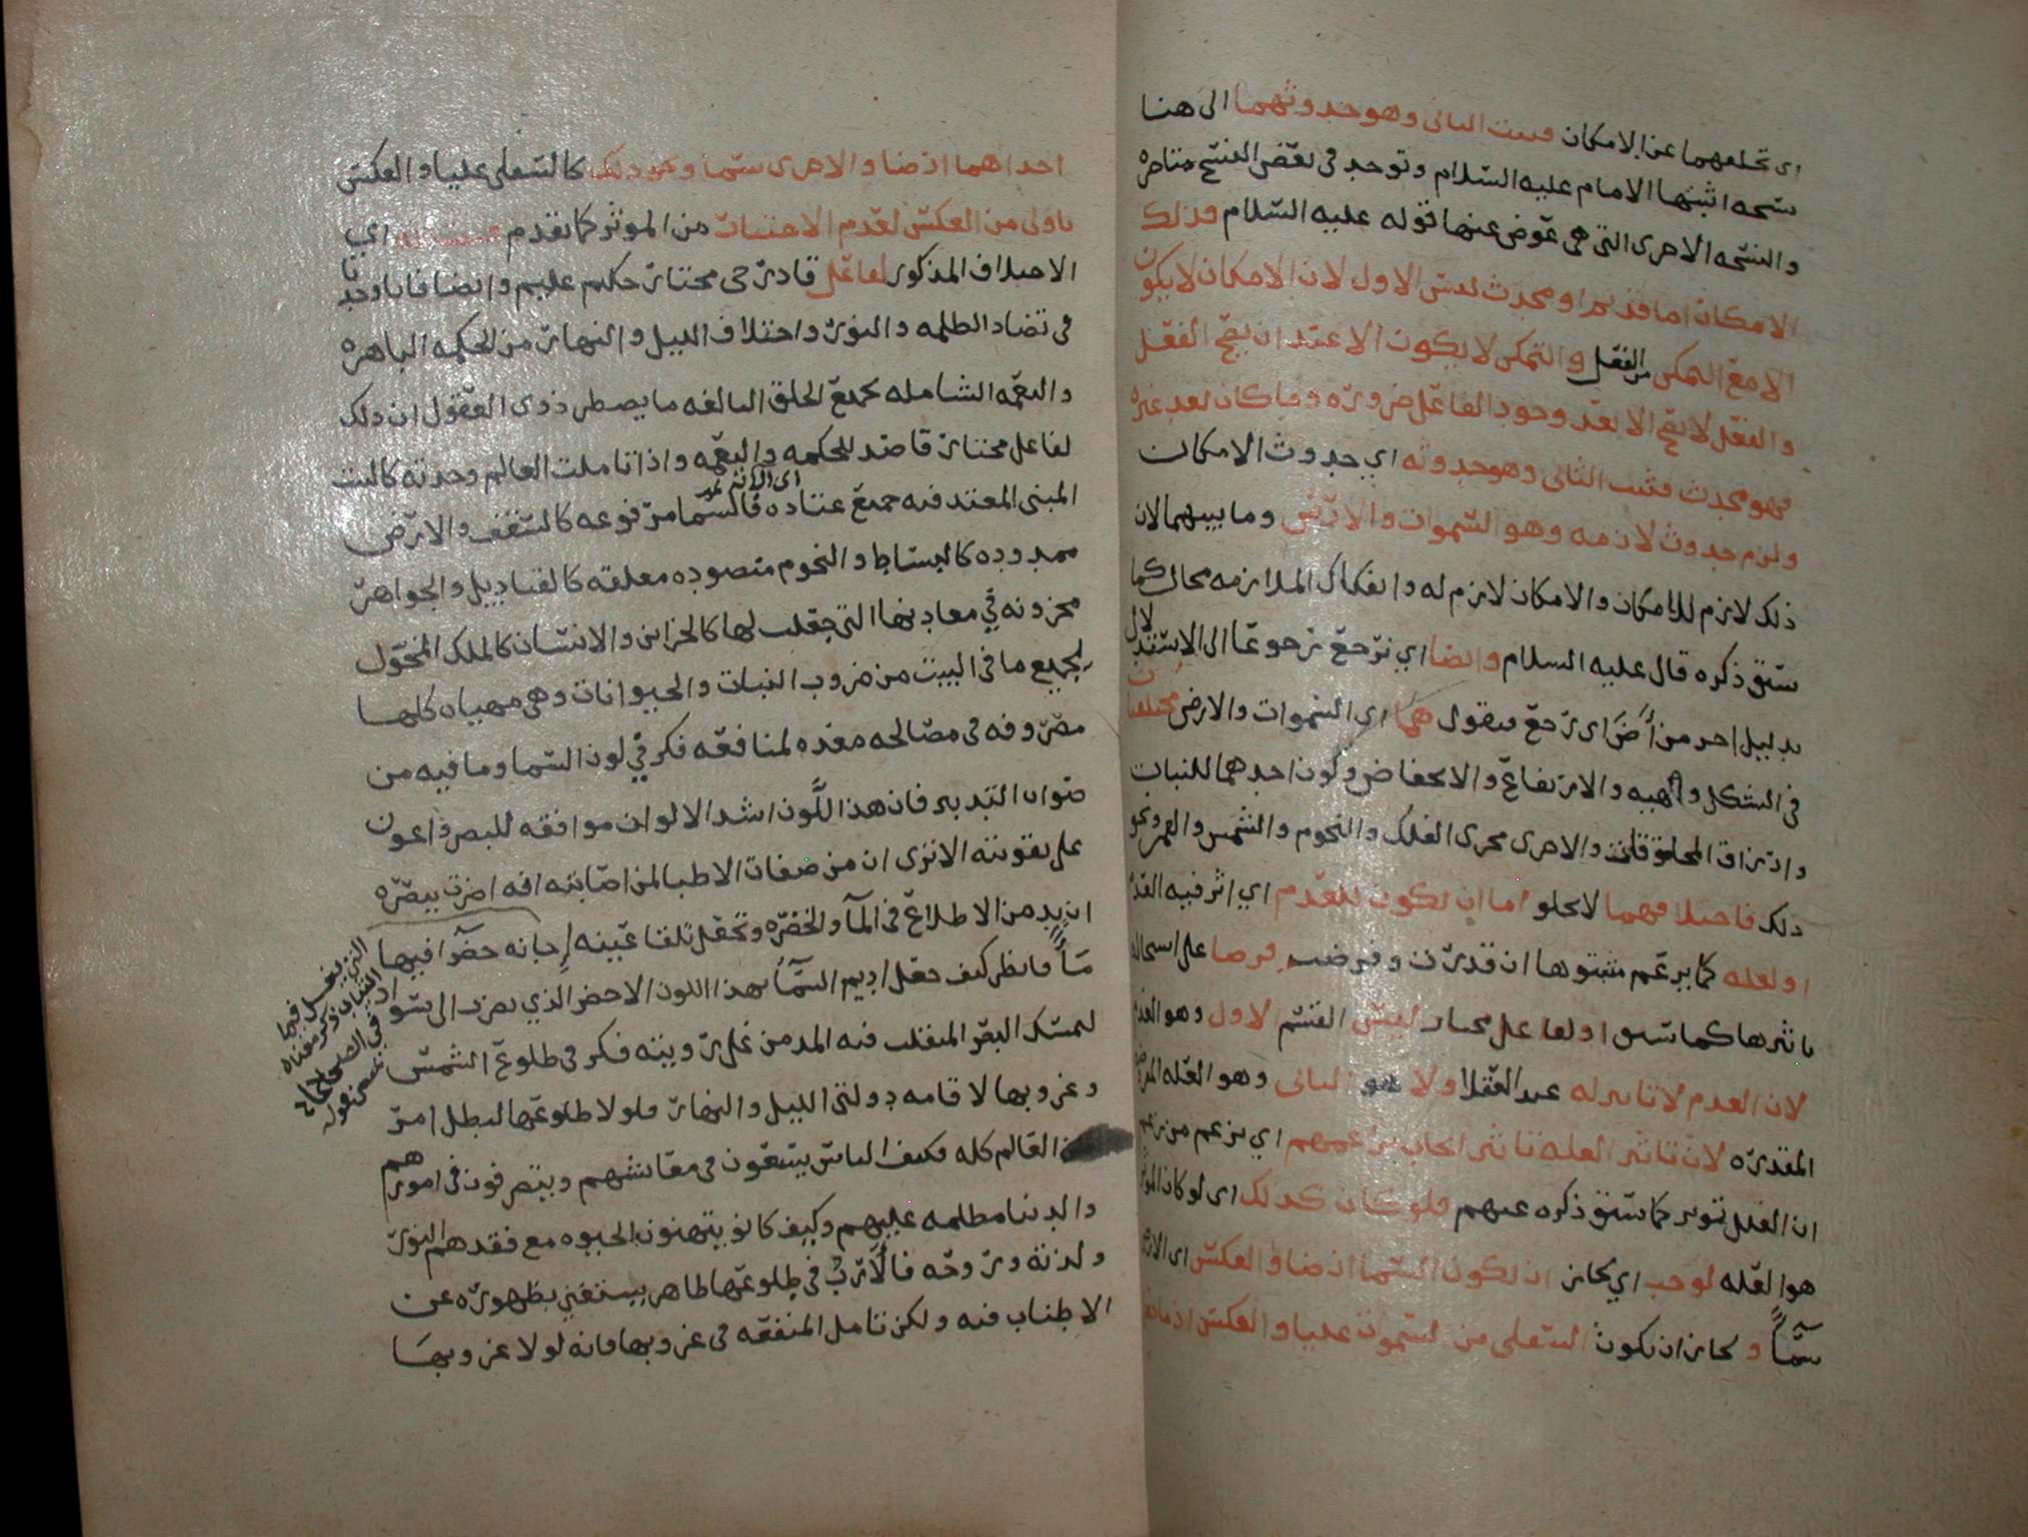 اي تخلفهما عن الامكان فثبت الثاني وهو حدوثهما الى هنا
نسخه اثبتها الامام عليه السلام وتوجد في بعض النسخ متاخره
والنسخه الاخرى التي هي عوض عنها قوله عليه السلام فذلك
الامكان اما قديم او محدث ليس الاول لان الامكان لا يكون
الا مع التمكن من الفعل والتمكن لا يكون الا عند ان يصح الفعل
والفعل لا يصح الا بعد وجود الفاعل ضروره وما كان بعد غيره
فهو محدث فثبت الثاني وهو حدوثه اي حدوث الامكان
ولزم حدوث لازمه وهو السموات والارض وما بينهما لان
ذلك لازم للامكان والامكان لازم له وانفكاك الملازمه محال كما
سبق ذكره قال عليه السلام وايضا اي نرجع رجوعا الى الاستدلال
بدليل اخر من أَضَ اي رجع فنقول هما اي السموات والارض مختلفتان
في الشكل والهيه والارتفاع والانخفاض وكون احدهما للنبات
وارزاق المخلوقات والاخرى مجرى الفلك والنجوم والشمس والقمر ونحو
ذلك فاختلافهما لا يخلو اما ان يكون للعدم اي اثر فيه العدم
او لعله كما يزعم مثبتوها ان قدرت وفرضت فرضا على استحاله
تاثيرها كما سبق او لفاعل مختار ليس القسم الاول وهو العدم
لان العدم لا تاثير له عند العقلا ولا هو الثاني وهو العله
المقدره لان تاثير العله تاثير ايجاب بزعمهم اي بزعم من زعم
ان العلل توثر كما سبق ذكره عنهم فلو كان كذلك اي لو كان الموثر
هو العله لوجب اي لجاز ان تكون السما ارضا والعكس اي الارض
سمآءً ولجاز ان تكون السفلى من السموات عليا والعكس اذ ما
احداهما ارضا والاخرى سما ونحو ذلك كالسفلى عليا والعكس
باولى من العكس لعدم الاختيار من الموثر كما تقدم اي
الاختلاف المذكور لفاعل قادر حي مختار حكيم عليم وايضا فانا وجدنا
في تضاد الظلمه والنور واختلاف الليل والنهار من الحكمه الباهره
والنعمه الشامله لجميع الخلق البالغه ما يضطر ذوي العقول ان ذلك
لفاعل مختار قاصد للحكمه والنعمه واذا تاملت العالم وجدته كالبيت
المبني المعتد فيه جميع عتاده فالسما مرفوعه كالسقف والارض
ممدوده كالبساط والنجوم منضوده معلقه كالقناديل والجواهر
مخزونه في معادنها التي جعلت لها كالخزاين والانسان كالملك المخول
لجميع ما في البيت من ضروب النبات والحيوانات وهي مهياه كلها
مصروفه في مصالحه معده لمنافعه فكر في لون السما وما فيه من
صواب التدبير فان هذا اللَّون اشد الالوان موافقه للبصر واعون
على تقويته الا ترى ان من صفات الاطبا لمن اصابته افه اضرت ببصره
ان يدمن الاطلاع في المآ والخضره وتجعل تلقا عينه إجانه خضرآ فيها
مآءً فانظر كيف جعل اديم السمآ بهذا اللون الاخضر الذي يضرب الى السواد
ليمسك البصر المنقلب فيه المدمن على رويته فكر في طلوع الشمس
وغروبها لاقامه دولتي الليل والنهار فلولا طلوعها لبطل امر
العالم كله فكيف الناس يسعون في معايشهم ويتصرفون في امورهم
والدنيا مظلمه عليهم وكيف كانو يتهنون بالحيوه مع فقدهم النور
ولذته وروحه فالأرب في طلوعها ظاهر يستغنى بظهوره عن
الاطناب فيه ولكن تامل المنفعه في غروبها فانه لولا غروبها
التي يغسل فيها
الثياب ذكر معناه
في الصحاح